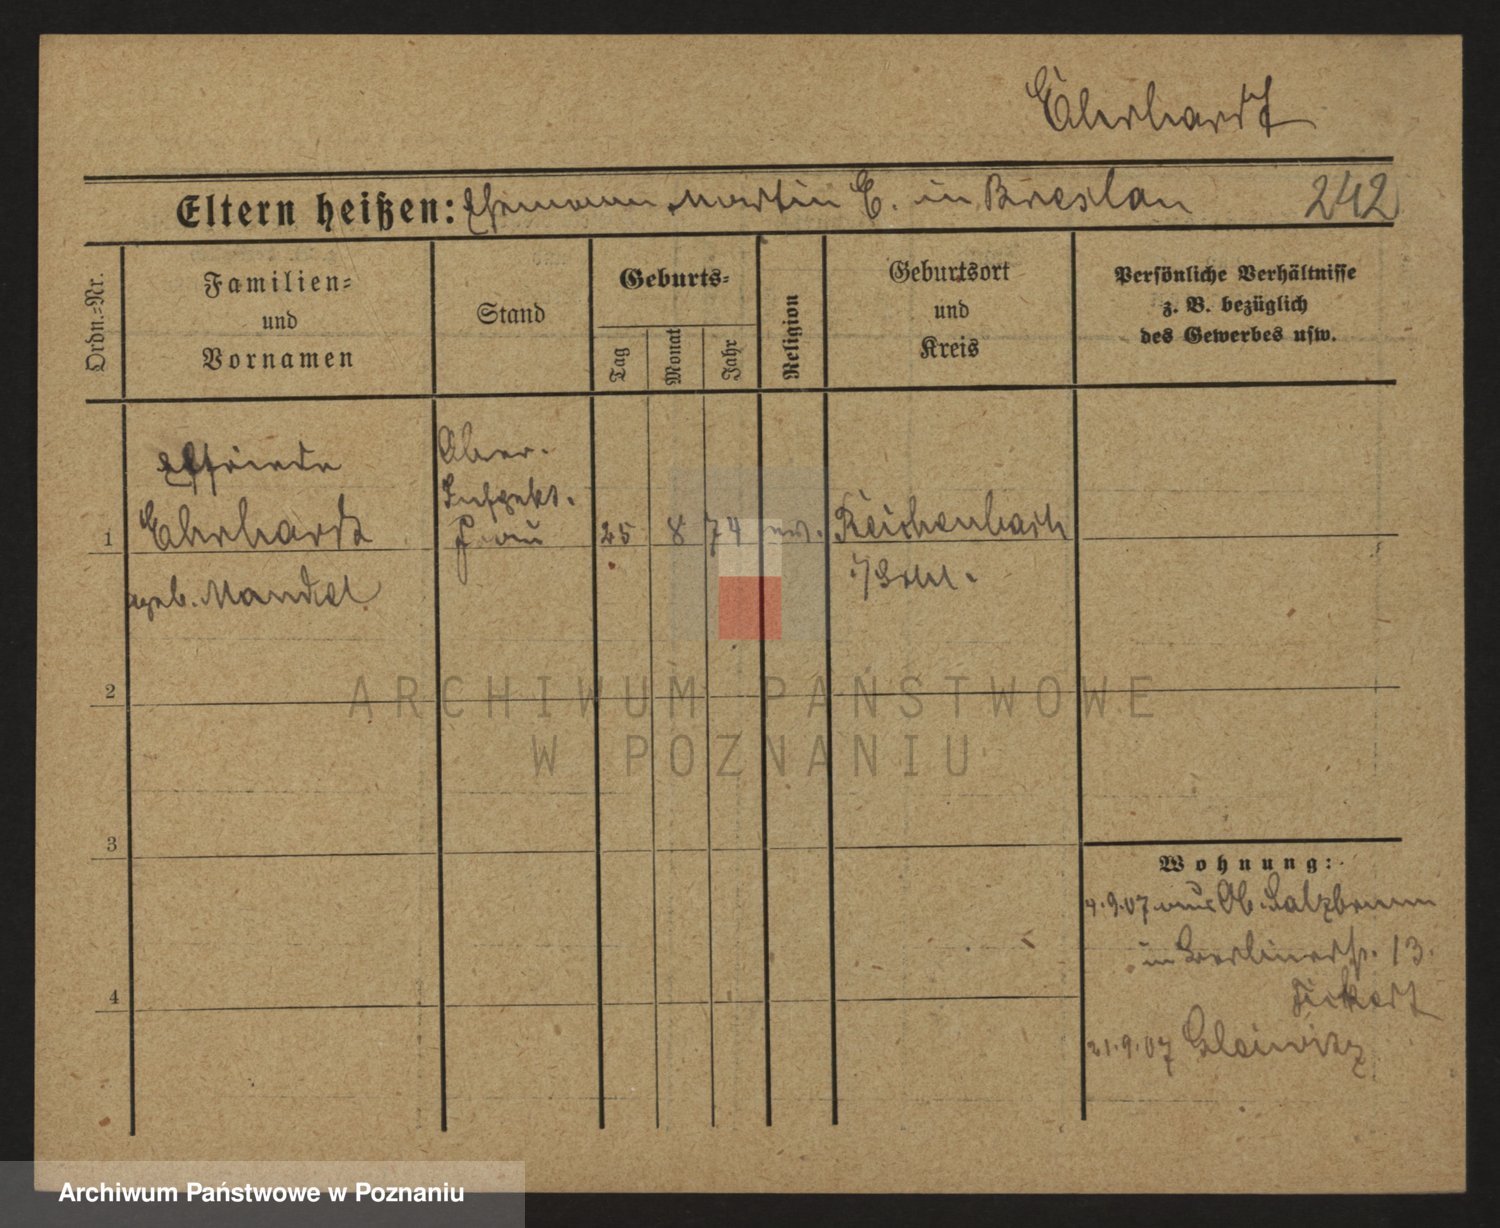 Ehrhardt
Eltern heißen: Ehemann Martin E. in Breslau 242
Ordn.-Nr.
Familien-
und
Vornamen
Stand
Geburts-
Tag
Monat
Jahr
Religion
Geburtsort
und
Kreis
Persönliche Verhältnisse
z. B. bezüglich
des Gewerbes usw.
1
Elfriede
Ehrhardt
geb. Mandel
Ober-
Inspekt.
Frau
25 8 74 ev.
Reichenbach
i/Schl.
2
3
4
Wohnung:
4.9.07 aus Ob. Salzbrunn
in Berlinerstr. 13.
21.9.07 Gleiwitz
ARCHIWUM PAŃSTWOWE
W POZNANIU
Archiwum Państwowe w Poznaniu